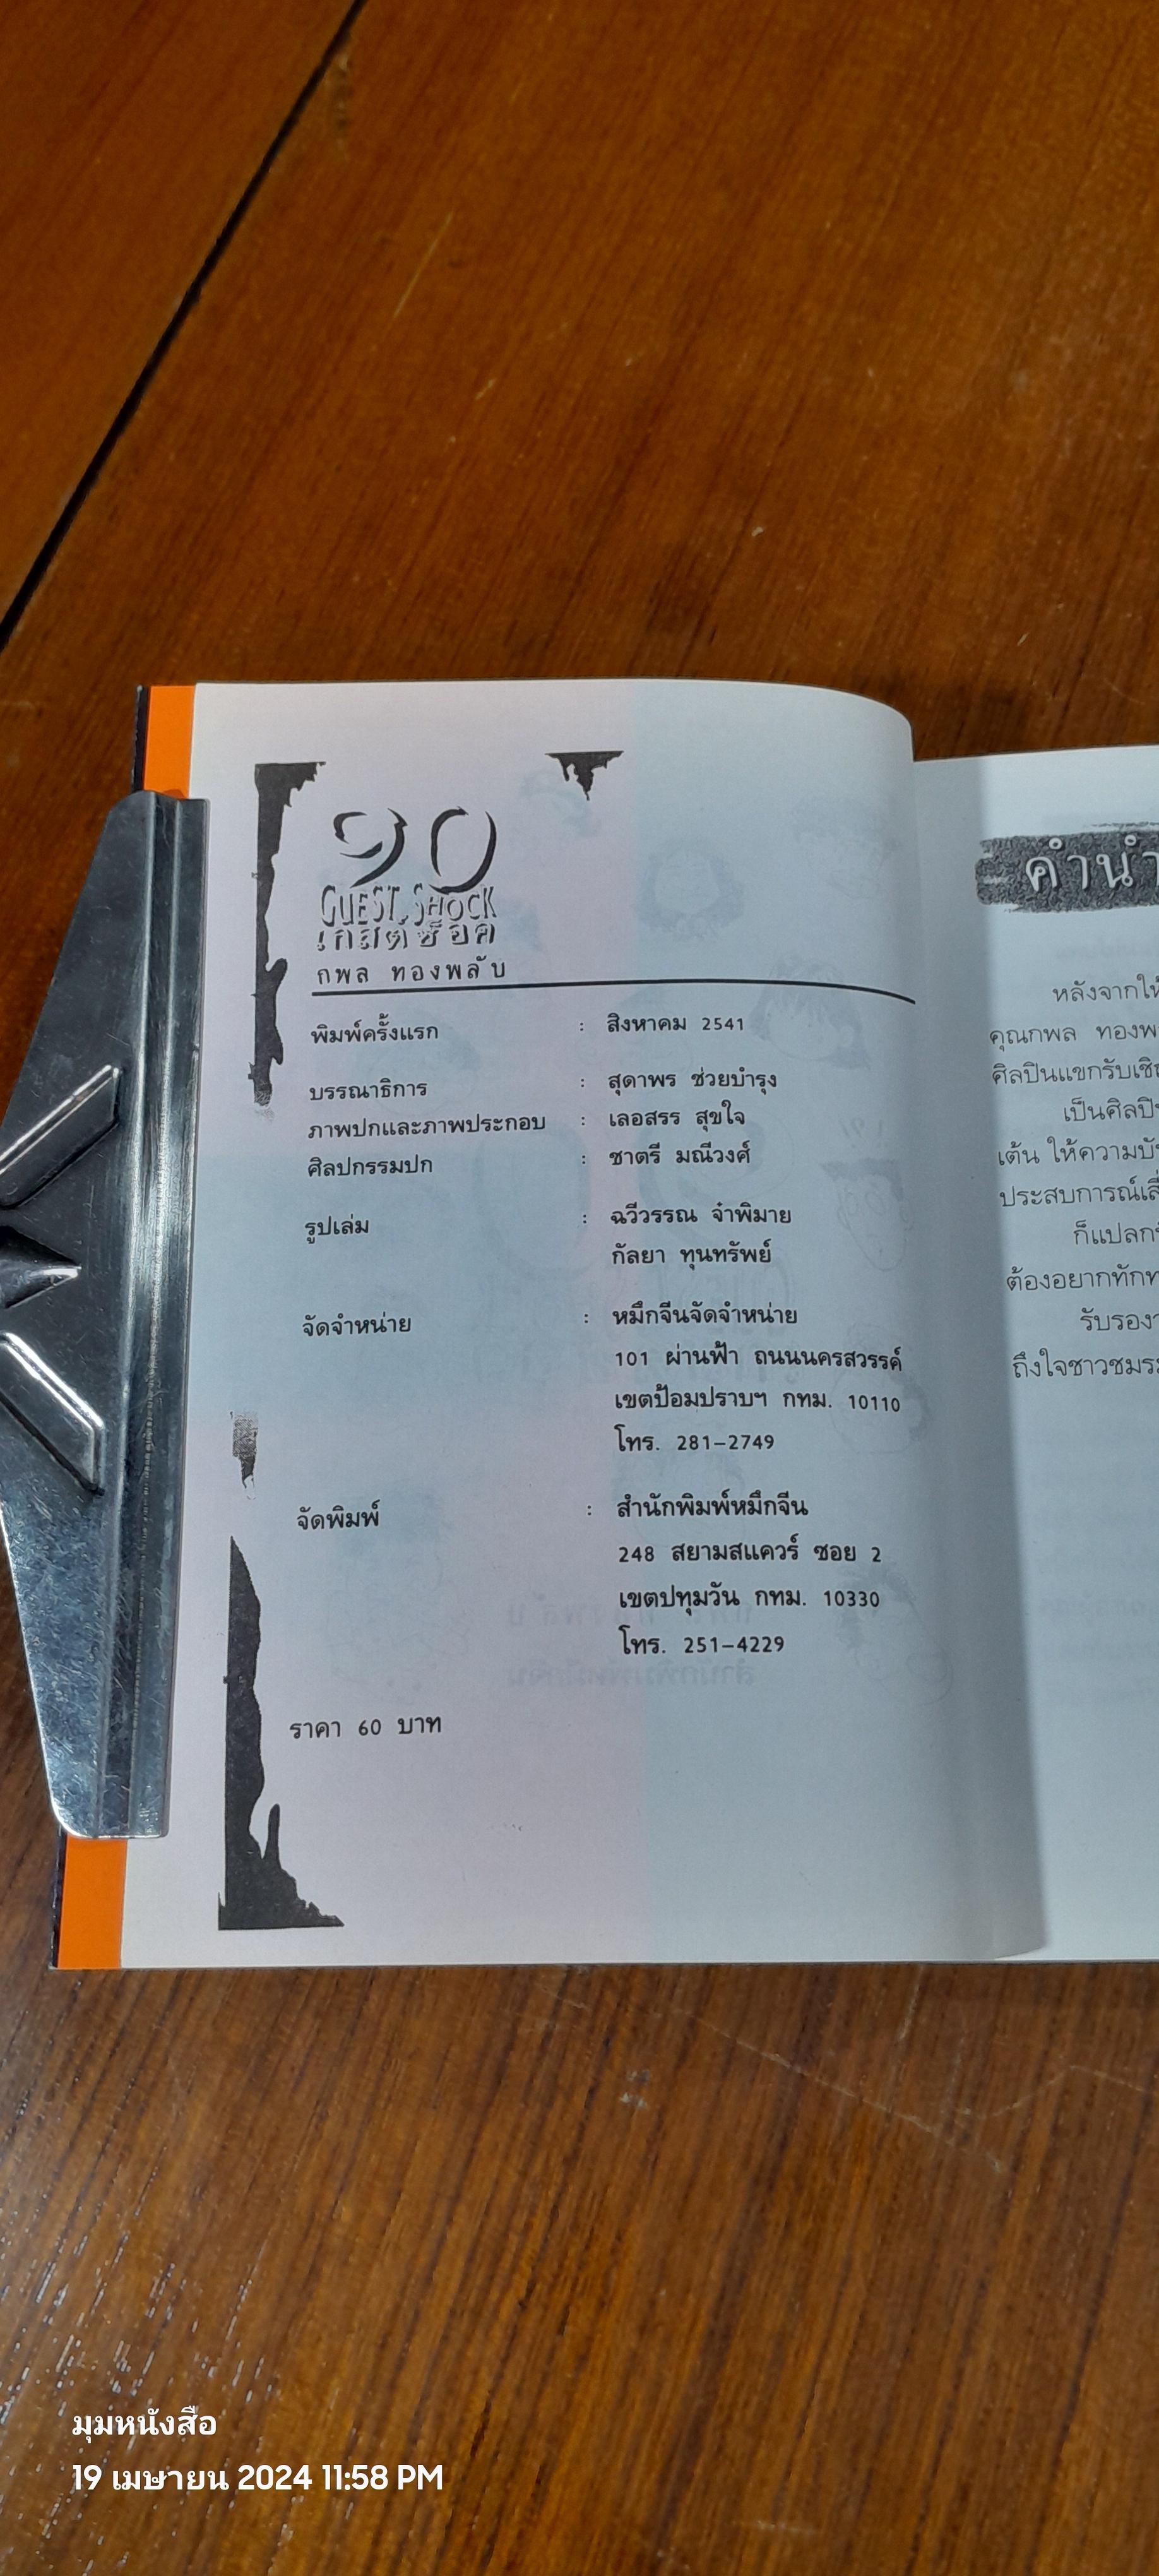 90
GUEST SHOCK
เกสต์ช็อค
กพล ทองพลับ
พิมพ์ครั้งแรก : สิงหาคม 2541
บรรณาธิการ : สุดาพร ช่วยบำรุง
ภาพปกและภาพประกอบ : เลอสรร สุขใจ
ศิลปกรรมปก : ชาตรี มณีวงศ์
รูปเล่ม : ฉวีวรรณ จำพิมาย
กัลยา ทุนทรัพย์
จัดจำหน่าย : หมึกจีนจัดจำหน่าย
101 ผ่านฟ้า ถนนนครสวรรค์
เขตป้อมปราบฯ กทม. 10110
โทร. 281-2749
จัดพิมพ์ : สำนักพิมพ์หมึกจีน
248 สยามสแควร์ ซอย 2
เขตปทุมวัน กทม. 10330
โทร. 251-4229
ราคา 60 บาท
คำนำ
หลังจากให้
คุณกพล ทองพ
ศิลปินแขกรับเชิ
เป็นศิลปิ
เต้น ให้ความบั
ประสบการณ์เสี่
ก็แปลก
ต้องอยากทัก
รับรอง
ถึงใจชาวชมร
มุมหนังสือ
19 เมษายน 2024 11:58 PM